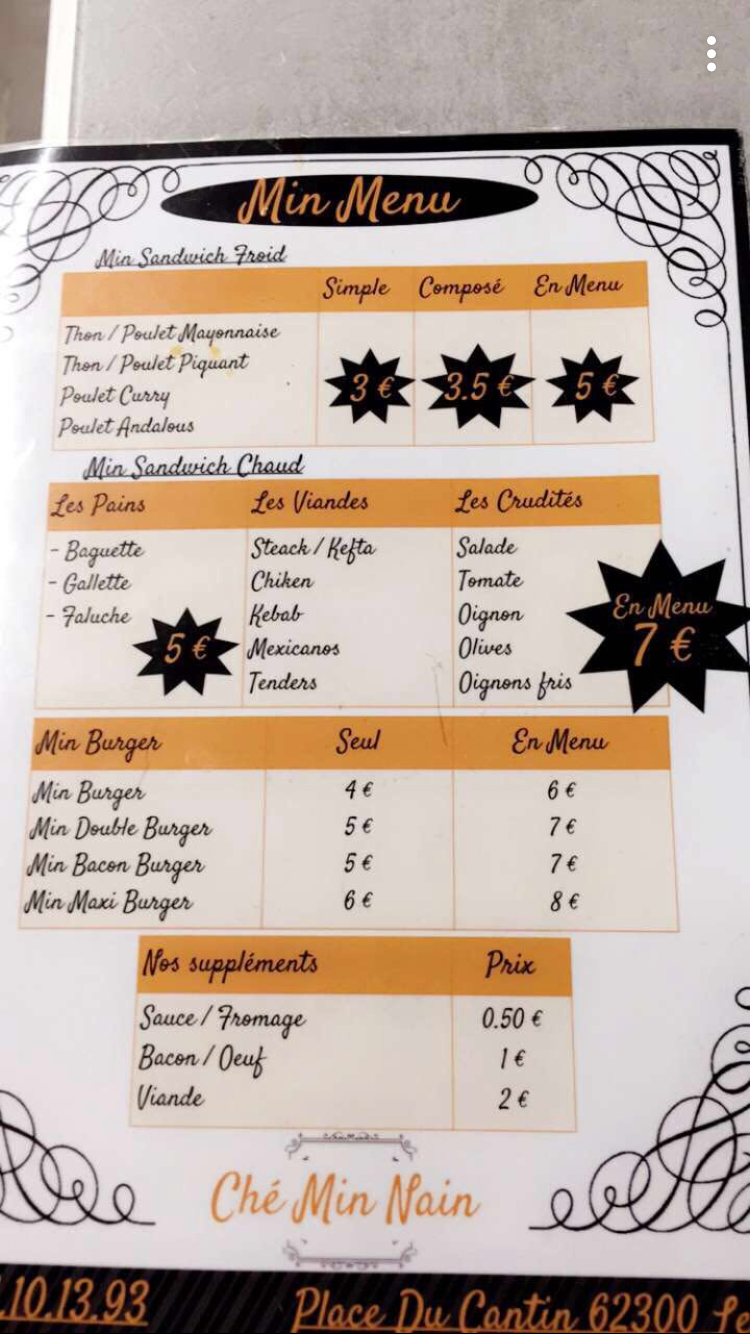 Min Menu
Min Sandwich Froid
Simple Composé En Menu
Thon / Poulet Mayonnaise
Thon / Poulet Piquant
Poulet Curry
Poulet Andalous
3 € 3.5 € 5 €
Min Sandwich Chaud
Les Pains Les Viandes Les Crudités
- Baguette Steack / Kefta Salade
- Gallette Chiken Tomate
- Faluche Kebab Oignon
Mexicanos Olives
Tenders Oignons fris
5 €
En Menu
7 €
Min Burger Seul En Menu
Min Burger 4 € 6 €
Min Double Burger 5 € 7 €
Min Bacon Burger 5 € 7 €
Min Maxi Burger 6 € 8 €
Nos suppléments Prix
Sauce / Fromage 0.50 €
Bacon / Oeuf 1 €
Viande 2 €
Ché Min Nain
.10.13.93 Place Du Cantin 62300